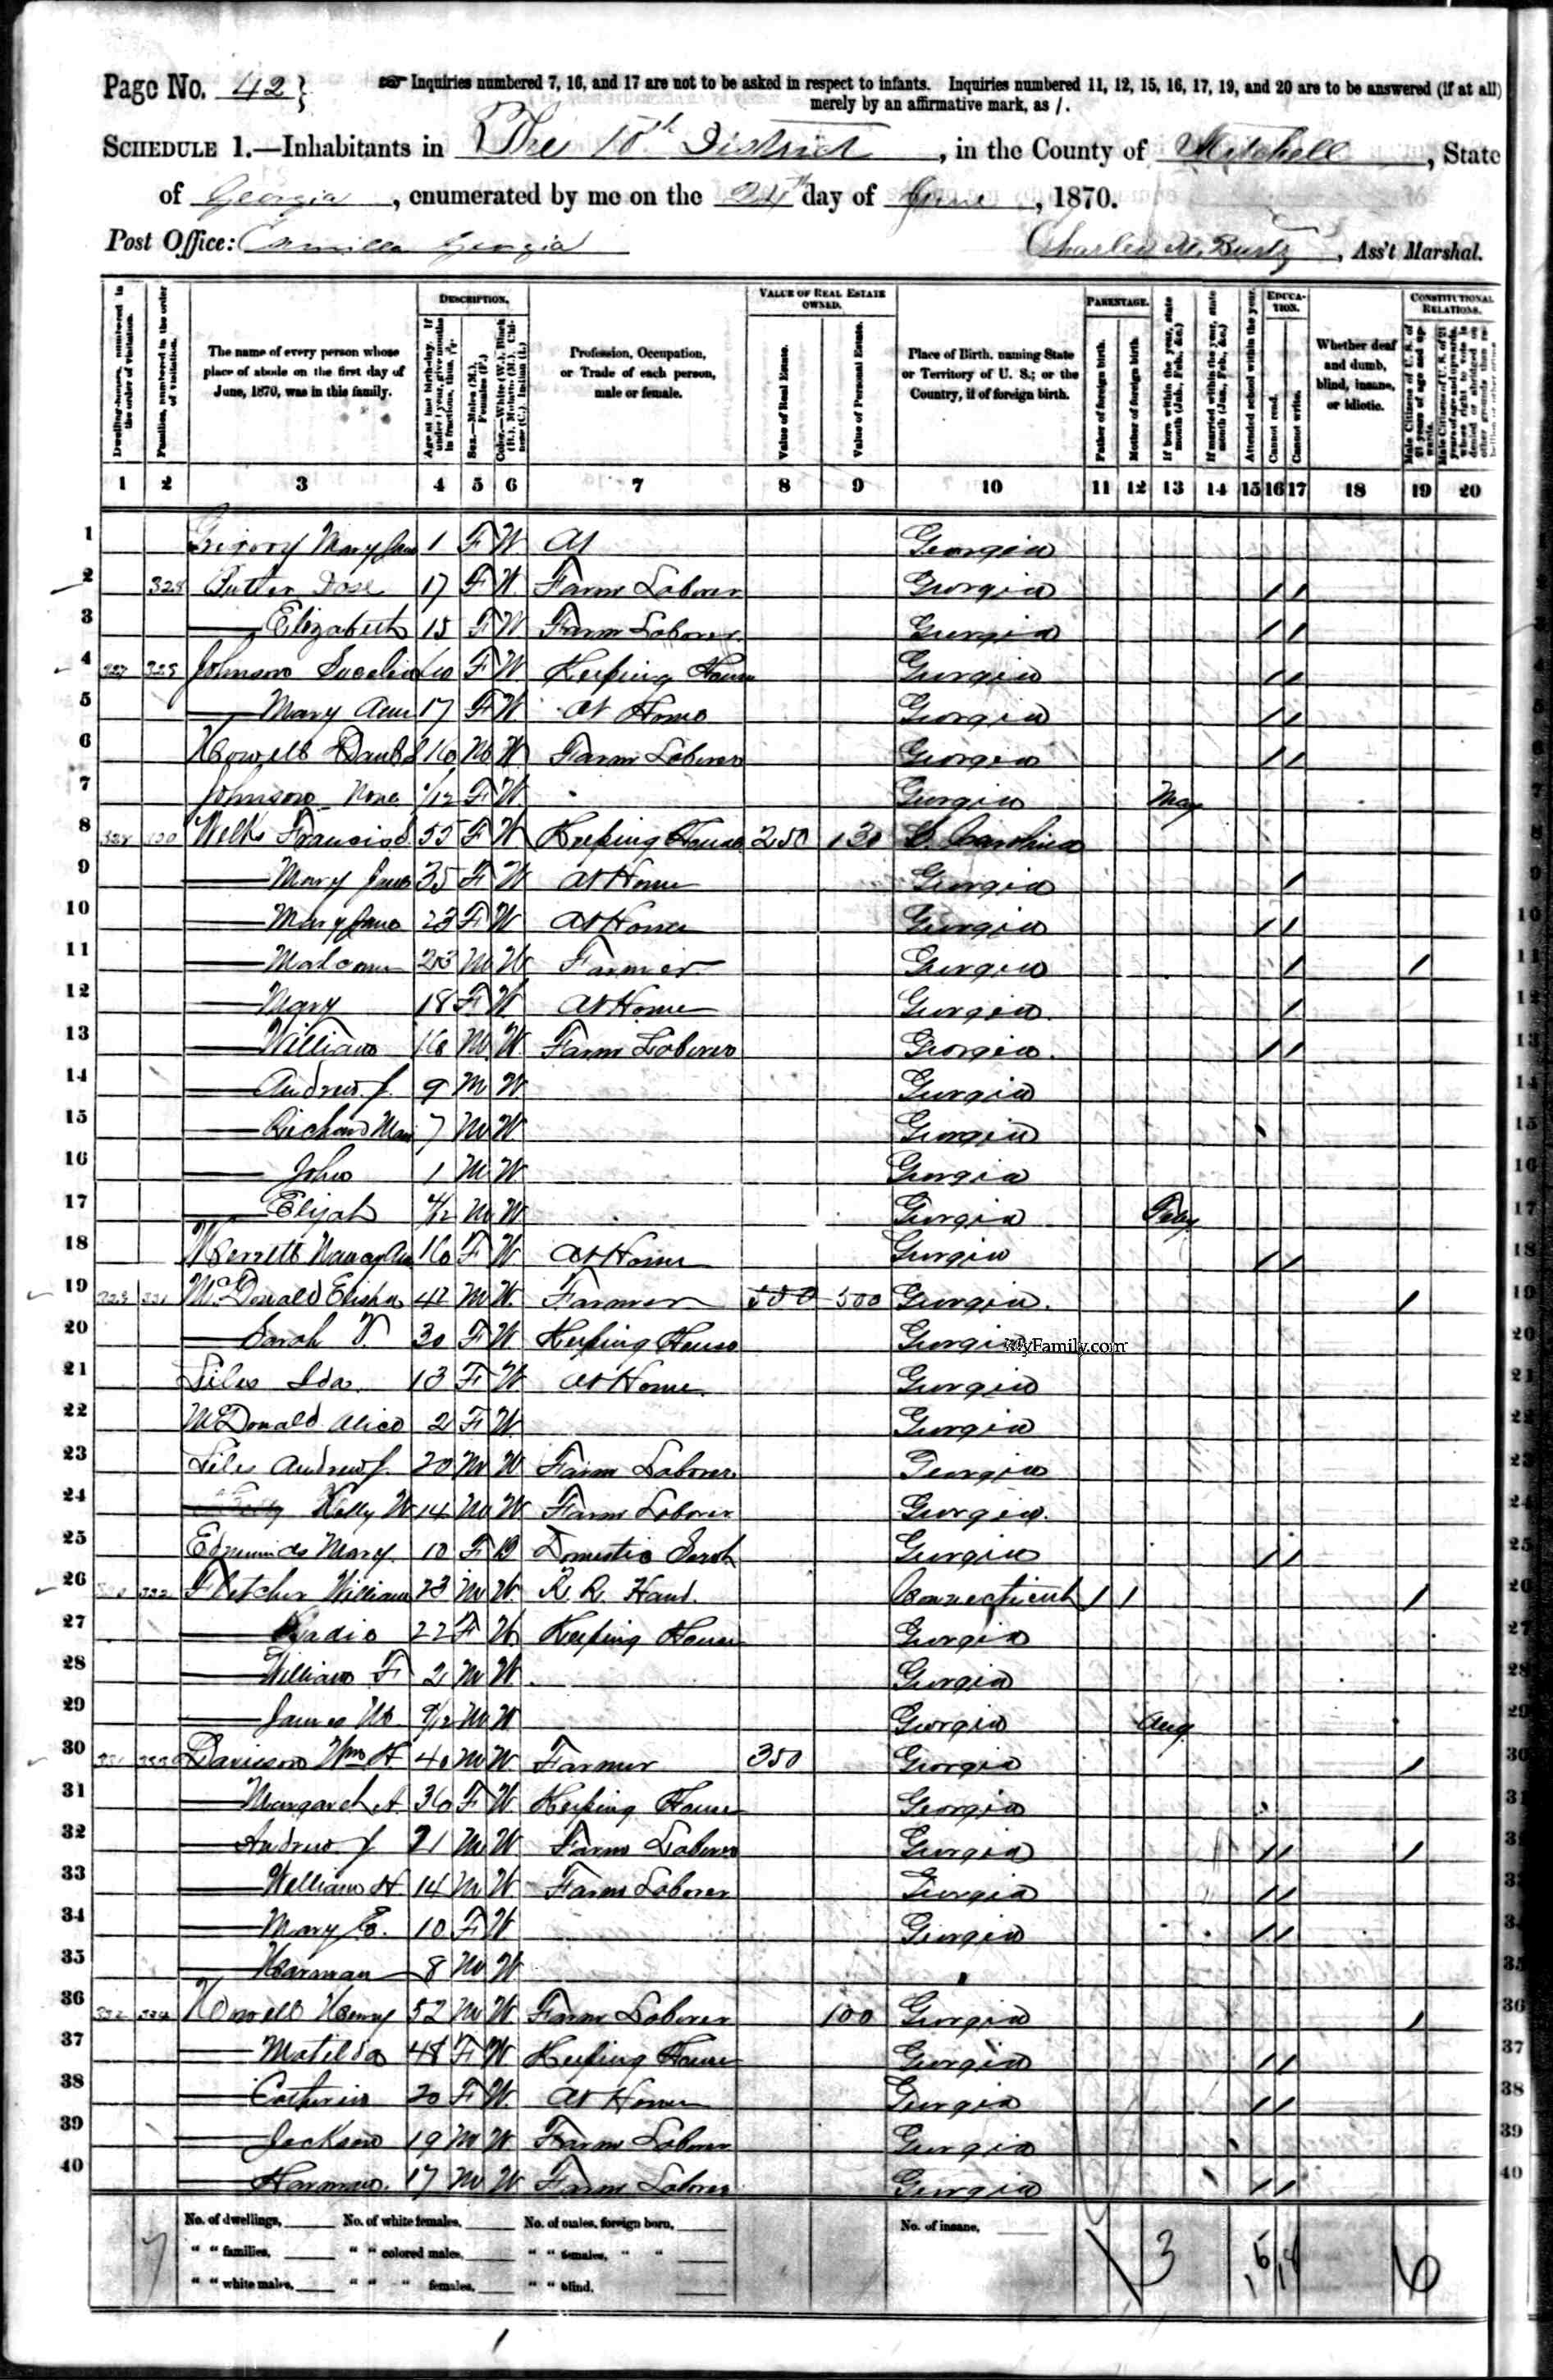 Page No. 42 }
Inquiries numbered 7, 16, and 17 are not to be asked in respect to infants. Inquiries numbered 11, 12, 15, 16, 17, 19, and 20 are to be answered (if at all)
merely by an affirmative mark, as /.
SCHEDULE 1.—Inhabitants in The 10th District, in the County of Mitchell, State
of Georgia, enumerated by me on the 24th day of June, 1870.
Post Office: Camilla Georgia Charles, Ass't Marshal.
DESCRIPTION. VALUE OF REAL ESTATE OWNED. PARENTAGE. EDUCATION. CONSTITUTIONAL RELATIONS.
Dwelling-houses, numbered in the order of visitation.
Families, numbered in the order of visitation.
The name of every person whose place of abode on the first day of June, 1870, was in this family.
Profession, Occupation, or Trade of each person, male or female.
Value of Real Estate.
Value of Personal Estate.
Place of Birth, naming State or Territory of U. S.; or the Country, if of foreign birth.
Father of foreign birth.
Mother of foreign birth.
If born within the year, state month (Jan., Feb., &c.)
If married within the year, state month (Jan., Feb., &c.)
Attended school within the year.
Cannot read.
Cannot write.
Whether deaf and dumb, blind, insane, or idiotic.
1 2 3 4 5 6 7 8 9 10 11 12 13 14 15 16 17 18 19 20
1 Mary 1 F W At Georgia
2 328 17 F W Farm Laborer Georgia / /
3 Elizabeth 15 F W Farm Laborer Georgia / /
4 327 329 Johnson F W Keeping House Georgia / /
5 Mary Ann 17 F W At Home Georgia / /
6 Howell 16 M W Farm Laborer Georgia / /
7 Johnson 1/12 F W Georgia May
8 328 330 55 F W Keeping House 250 130 Carolina
9 Mary 35 F W At Home Georgia /
10 Mary Jane 23 F W At Home Georgia / /
11 Malcom 23 M W Farmer Georgia / /
12 Mary 18 F W At Home Georgia /
13 William 16 M W Farm Laborer Georgia / /
14 Andrew J. 9 M W Georgia
15 Richard 7 M W Georgia
16 John 1 M W Georgia
17 Elijah 4/12 M W Georgia Feby
18 16 F W At Home Georgia / /
19 329 331 McDonald Elisha 42 M W Farmer 500 500 Georgia /
20 Sarah V. 30 F W Keeping House Georgia
MyFamily.com
21 Liles Ida 13 F W At Home Georgia
22 McDonald Alice 2 F W Georgia
23 Liles Andrew J. 20 M W Farm Laborer Georgia
24 Kelly W 14 M W Farm Laborer Georgia
25 Mary 10 F B Domestic Georgia / /
26 332 Fletcher William 23 M W R. R. Hand Connecticut / / /
27 22 F W Keeping House Georgia
28 William F 2 M W Georgia
29 James 9/12 M W Georgia Aug
30 331 333 Wm H 40 M W Farmer 350 Georgia /
31 Margaret A 36 F W Keeping House Georgia
32 Andrew J 21 M W Farm Laborer Georgia / / /
33 William H 14 M W Farm Laborer Georgia / /
34 Mary E. 10 F W Georgia / /
35 Harman 8 M W "
36 332 334 Howell Henry 52 M W Farm Laborer 100 Georgia /
37 Matilda 48 F W Keeping House Georgia / /
38 20 F W At Home Georgia / /
39 Jackson 19 M W Farm Laborer Georgia
40 Harman 17 M W Farm Laborer Georgia / /
No. of dwellings, No. of white females, No. of males, foreign born, No. of insane,
" " families, " " colored males, " " females, " "
" " white males, " " " females, " " blind,
3 16 18 6